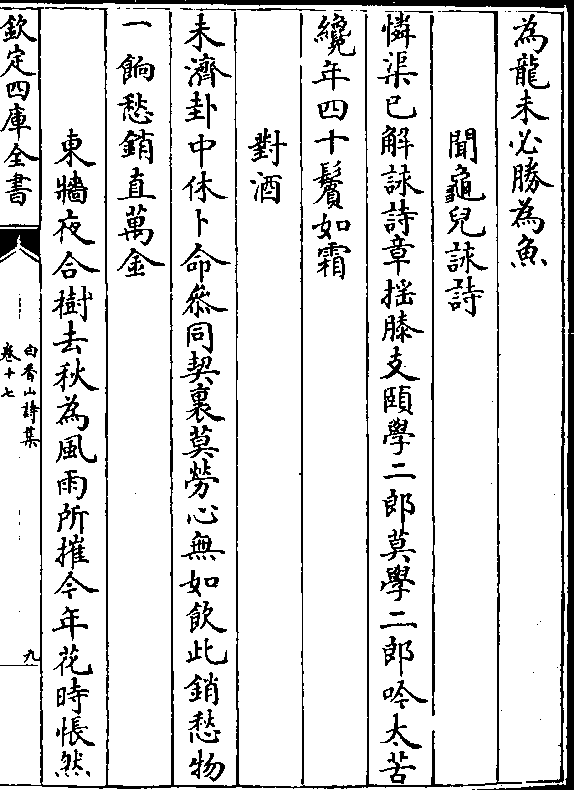 為龍未必勝為魚
聞龜兒詠詩
憐渠已解詠詩章揺膝支頤學二郎莫學二郎吟太苦
纔年四十鬢如霜
對酒
未濟卦中休卜命叅同契裏莫勞心無如飲此銷愁物
一餉愁銷直萬金
東牆夜合樹去秋為風雨所摧今年花時悵然
欽定四庫全書
白香山詩集
卷十七
九